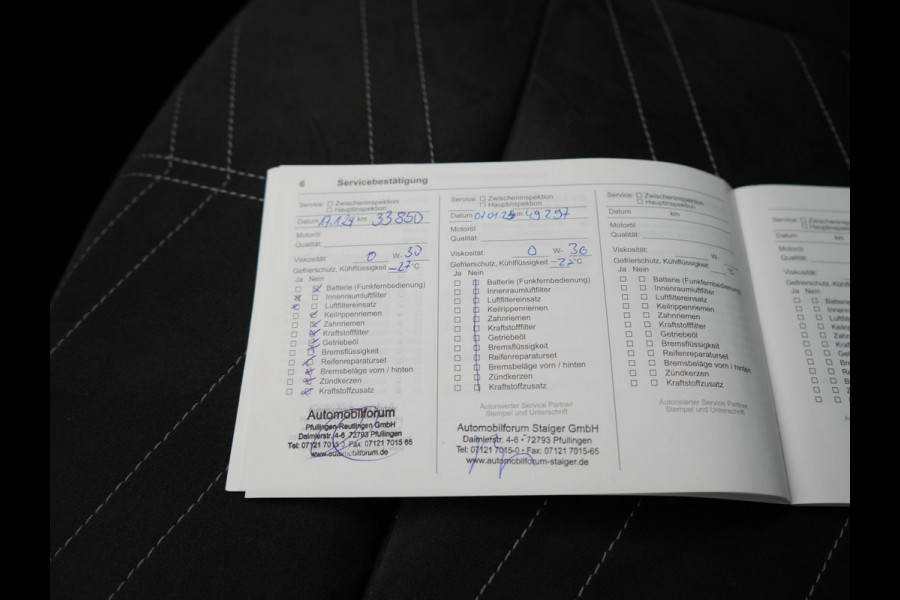 6 Servicebestätigung
Service: Zwischeninspektion
Hauptinspektion
Datum 17.1.24 km 33850
Motoröl
Qualität:
Viskosität: 0 W- 30
Gefrierschutz, Kühlflüssigkeit -27 °C
Ja Nein
Batterie (Funkfernbedienung)
Innenraumluftfilter
Luftfiltereinsatz
Keilrippenriemen
Zahnriemen
Kraftstofffilter
Getriebeöl
Bremsflüssigkeit
Reifenreparaturset
Bremsbeläge vorn / hinten
Zündkerzen
Kraftstoffzusatz
Automobilforum
Pfullingen-Reutlingen GmbH
Daimlerstr. 4-6 72793 Pfullingen
Tel: 07121 7015-0 Fax: 07121 7015 65
www.automobilforum.de
Service: Zwischeninspektion
Hauptinspektion
Datum 07.01.25 km 49297
Motoröl
Qualität:
Viskosität: 0 W- 30
Gefrierschutz, Kühlflüssigkeit -22 °C
Ja Nein
Batterie (Funkfernbedienung)
Innenraumluftfilter
Luftfiltereinsatz
Keilrippenriemen
Zahnriemen
Kraftstofffilter
Getriebeöl
Bremsflüssigkeit
Reifenreparaturset
Bremsbeläge vorn / hinten
Zündkerzen
Kraftstoffzusatz
Autorisierter Service Partner
Stempel und Unterschrift
Automobilforum Staiger GmbH
Daimlerstr. 4-6 • 72793 Pfullingen
Tel: 07121 7015-0 • Fax: 07121 7015-65
www.automobilforum-staiger.de
Service: Zwischeninspektion
Hauptinspektion
Datum km
Motoröl
Qualität:
Viskosität: W-
Gefrierschutz, Kühlflüssigkeit °C
Ja Nein
Batterie (Funkfernbedienung)
Innenraumluftfilter
Luftfiltereinsatz
Keilrippenriemen
Zahnriemen
Kraftstofffilter
Getriebeöl
Bremsflüssigkeit
Reifenreparaturset
Bremsbeläge vorn / hinten
Zündkerzen
Kraftstoffzusatz
Autorisierter Service Partner
Stempel und Unterschrift
Service: Zwischeninspektion
Hauptinspektion
Datum km
Motoröl
Qualität:
Viskosität:
Gefrierschutz, Kühlflüssigkeit
Ja Nein